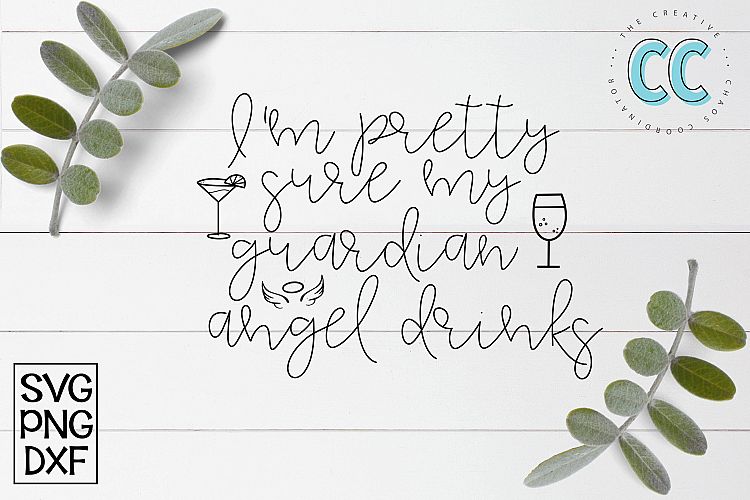 THE CREATIVE
CC
CHAOS COORDINATOR
I'm pretty
sure my
guardian
angel drinks
SVG
PNG
DXF